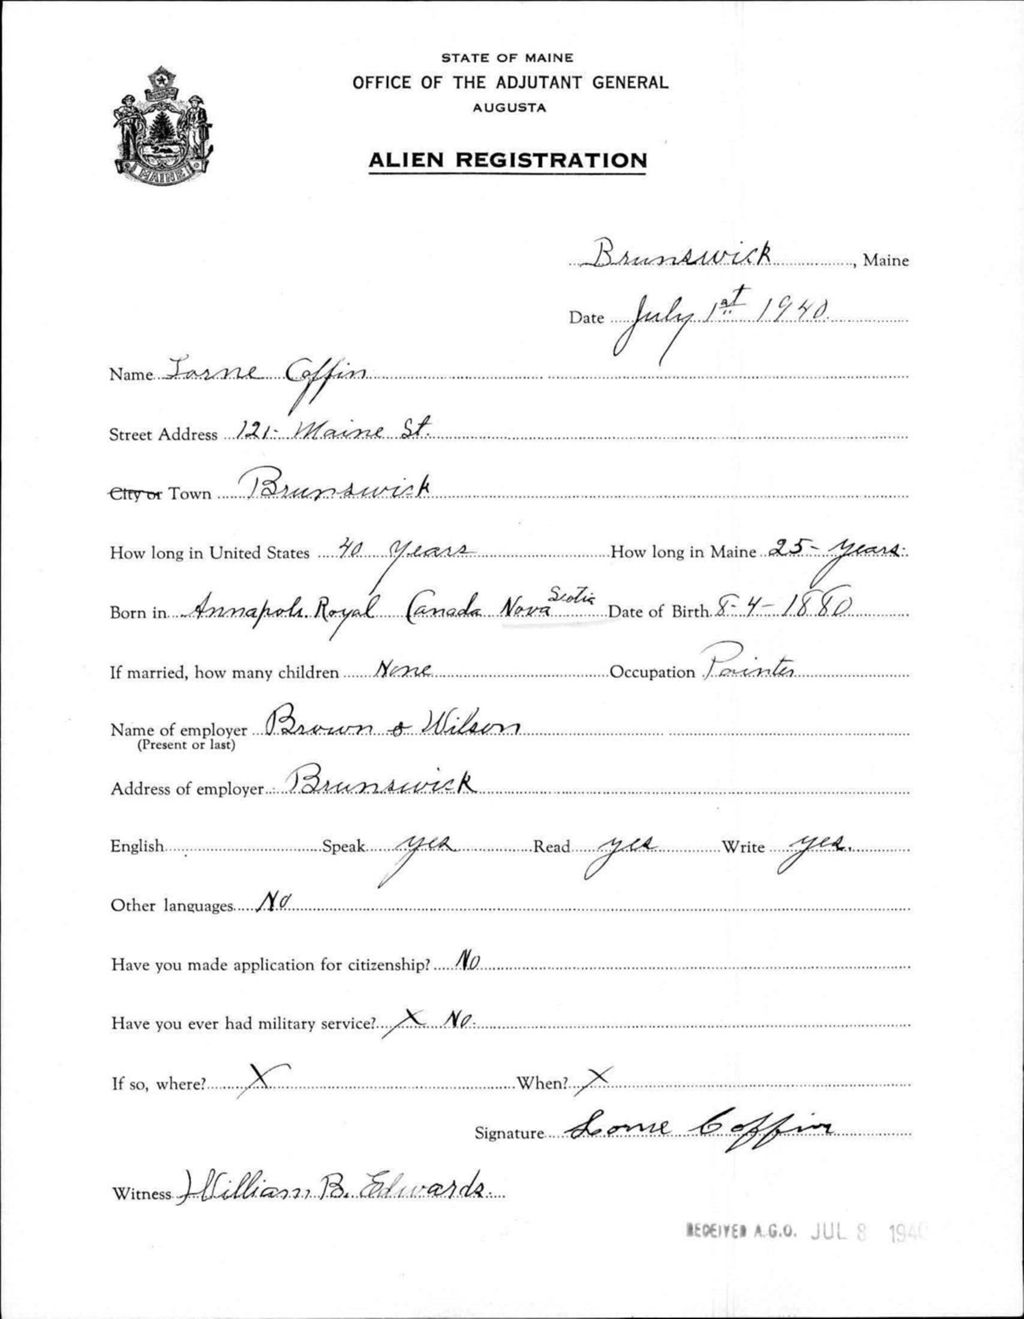 STATE OF MAINE
OFFICE OF THE ADJUTANT GENERAL
AUGUSTA
ALIEN REGISTRATION
MAINE
Brunswick, Maine
Date July 1st 1940
Name Lorne Coffin
Street Address 121- Maine St.
City or Town Brunswick
How long in United States 40 years How long in Maine 25- years.
Born in Annapolis Royal Canada Nova Scotia Date of Birth 8-4-1880
If married, how many children None Occupation Painter
Name of employer Brown & Wilson
(Present or last)
Address of employer Brunswick
English Speak yes Read yes Write yes.
Other languages No
Have you made application for citizenship? No
Have you ever had military service? X No.
If so, where? X When? X
Signature Lorne Coffin
Witness William B. Edwards.
RECEIVED A.G.O. JUL 8 1940